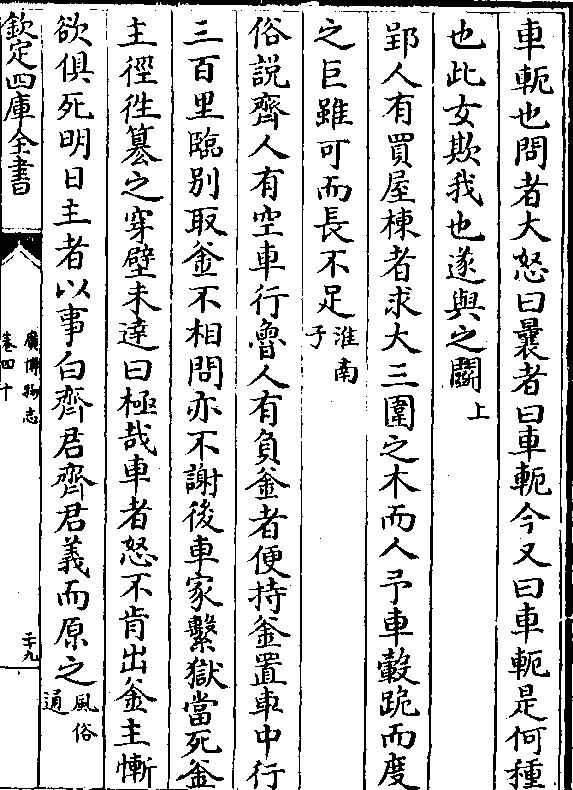 車軛也問者大怒曰曩者曰車軛今又曰車軛是何種
也此女欺我也遂與之鬭上
郢人有買屋棟者求大三圍之木而人予車轂跪而度
之巨雖可而長不足淮南子
俗說齊人有空車行魯人有負釜者便持釜置車中行
三百里臨别取釜不相問亦不謝後車家繫獄當死釜
主徑徃篡之穿壁未達曰極哉車者怒不肯出釜主慚
欲俱死明日主者以事白齊君齊君義而原之風俗通
欽定四庫全書
廣博物志
卷四十
二十九